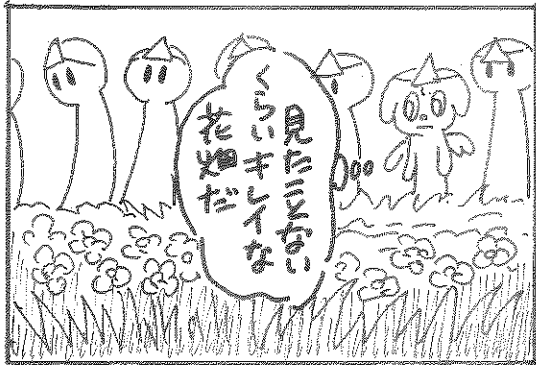 見たことない
くらいキレイな
花畑だ